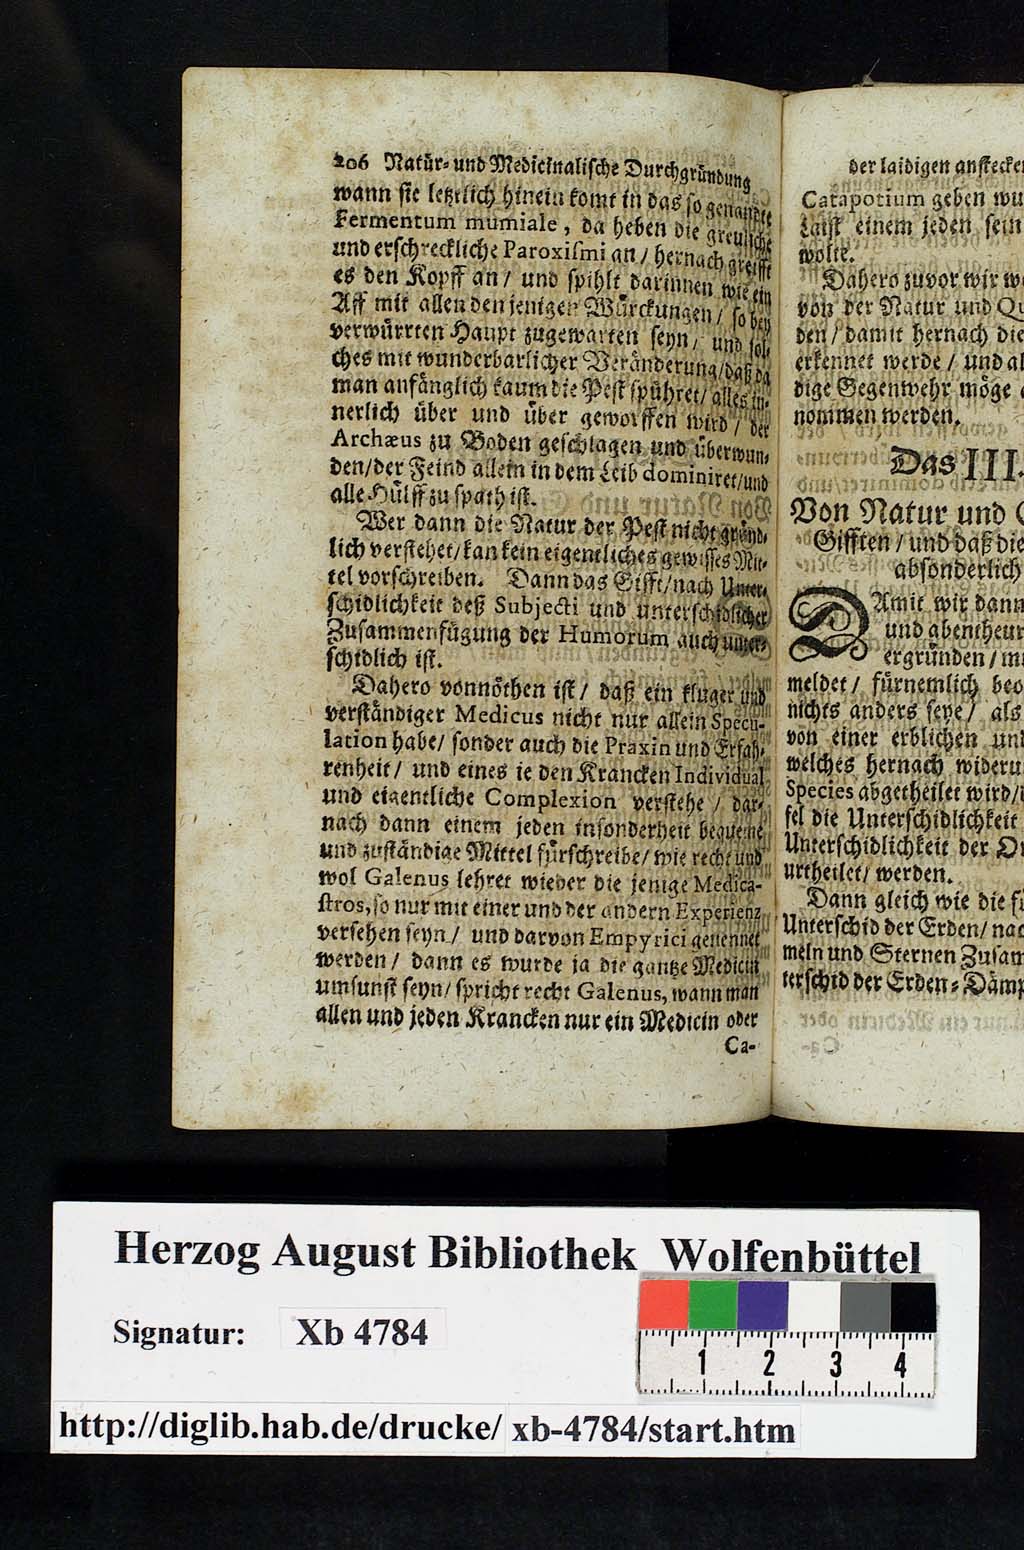 206 Natür- und Medicinalische Durchgründung
wann sie letztlich hinein komt in das so genandte
Fermentum mumiale, da heben die greuliche
und erschreckliche Paroxismi an/ hernach greifft
es den Kopff an/ und spihlt darinnen wie ein
Aff mit allen den jenigen Würckungen/ so bey
verwürrten Haupt zugewarten seyn/ und sol-
ches mit wunderbarlicher Veränderung/daß da
man anfänglich kaum die Pest spühret/ alles in-
nerlich über und über geworffen wird/ der
Archæus zu Boden geschlagen und überwun-
den/der Feind allein in dem Leib dominiret/und
alle Hülff zu spath ist.
Wer dann die Natur der Pest nicht gründ-
lich verstehet/kan kein eigentliches gewisses Mit-
tel vorschreiben. Dann das Gifft/nach Unter-
schidlichkeit deß Subjecti und unterschidlicher
Zusammenfügung der Humorum auch unter-
schidlich ist.
Dahero vonnöthen ist/ daß ein kluger und
verständiger Medicus nicht nur allein Specu-
lation habe/ sonder auch die Praxin und Erfah-
renheit/ und eines je den Krancken Individual
und eigentliche Complexion verstehe/ dar-
nach dann einem jeden insonderheit bequeme
und zuständige Mittel fürschreibe/ wie recht und
wol Galenus lehret wieder die jenige Medica-
stros, so nur mit einer und der andern Experienz
versehen seyn/ und darvon Empyrici genennet
werden/ dann es wurde ja die gantze Medicin
umsunst seyn/ spricht recht Galenus, wann man
allen und jeden Krancken nur ein Medicin oder
Ca-
der laidigen anstecken
Catapotium geben wu
Laist einem jeden sein
wolte.
Dahero zuvor wir we
von der Natur und Qu
den/ damit hernach die
erkennet werde/ und al
dige Gegenwehr möge
nommen werden.
Das III.
Von Natur und
Gifften/ und daß die
absonderlich
DAmit wir dann
und abentheur
ergründen/ mu
meldet/ fürnemlich beo
nichts anders seye/ als
von einer erblichen und
welches hernach wideru
Species abgetheilet wird/
fel die Unterschidlichkeit
Unterschidlichkeit der Or
urtheilet/ werden.
Dann gleich wie die fü
Unterschid der Erden/ nac
meln und Sternen Zusam
terschid der Erden-Dämp
Herzog August Bibliothek Wolfenbüttel
Signatur: Xb 4784
1 2 3 4
http://diglib.hab.de/drucke/ xb-4784/start.htm